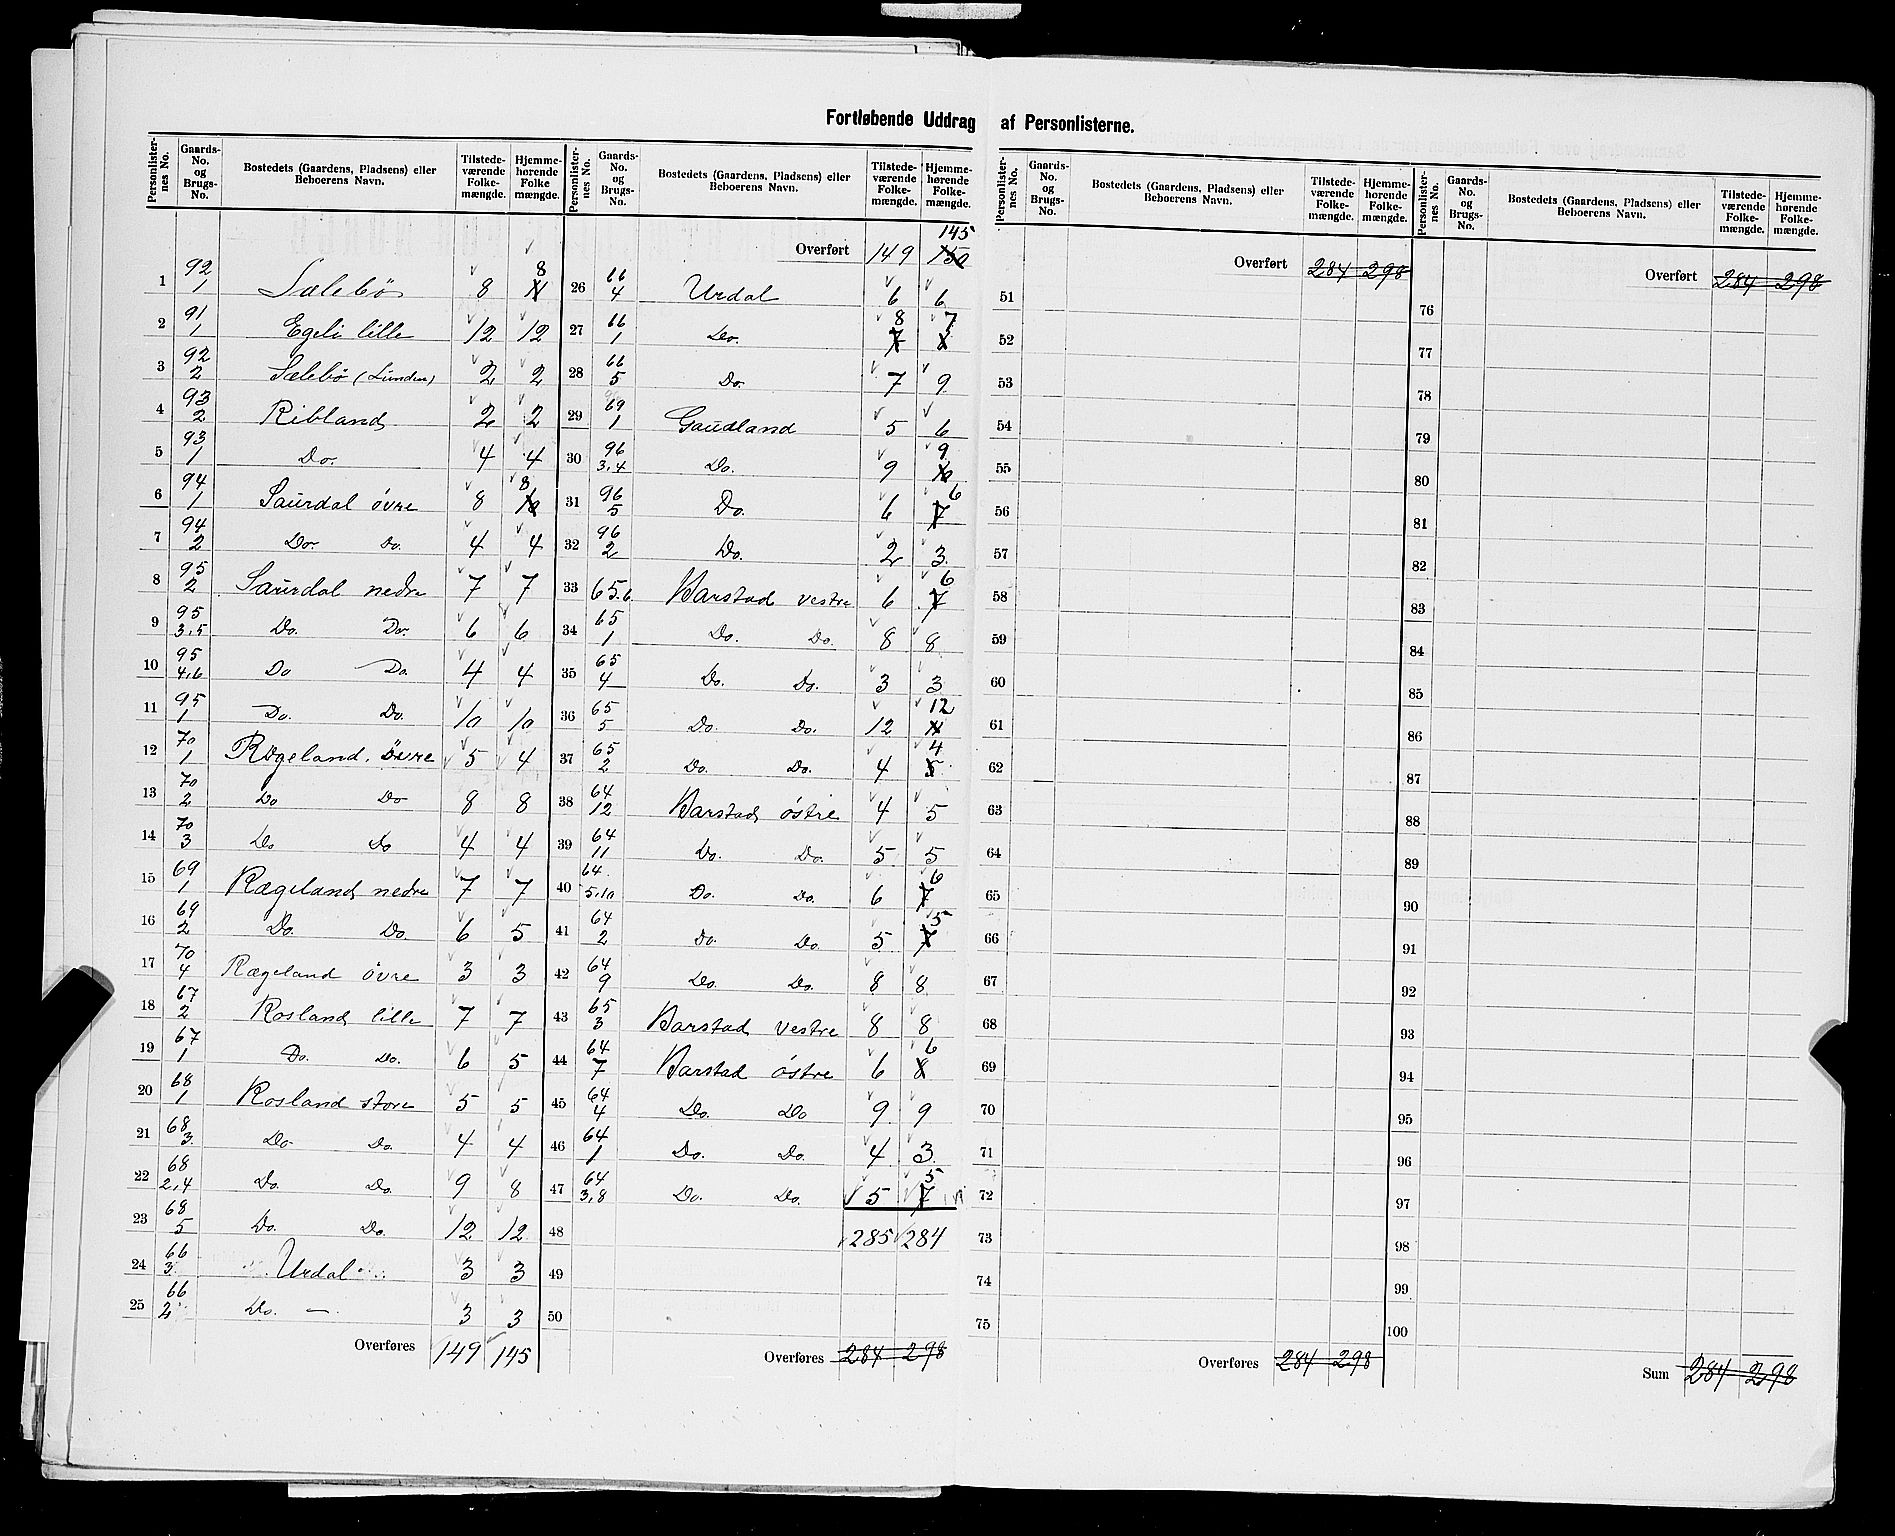 Fortløbende Uddrag af Personlisterne.
Personlister-nes No. | Gaards-No. og Brugs-No. | Bostedets (Gaardens, Pladsens) eller Beboerens Navn. | Tilstede-værende Folke-mængde. | Hjemme-hørende Folke mængde.
1 | 92/1 | Sælebø | 8 | 8
2 | 91/1 | Egeli lille | 12 | 12
3 | 92/2 | Sælebø (Lunden) | 2 | 2
4 | 93/2 | Ribland | 2 | 2
5 | 93/1 | Do. | 4 | 4
6 | 94/1 | Saurdal øvre | 8 | 8 10
7 | 94/2 | Do. Do. | 4 | 4
8 | 95/2 | Saurdal nedre | 7 | 7
9 | 95/3,5 | Do. Do. | 6 | 6
10 | 95/4,6 | Do Do. | 4 | 4
11 | 95/1 | Do. Do. | 10 | 10
12 | 70/1 | Rægeland. øvre | 5 | 4
13 | 70/2 | Do Do | 8 | 8
14 | 70/3 | Do Do | 4 | 4
15 | 69/1 | Rægeland nedre | 7 | 7
16 | 69/2 | Do. Do. | 6 | 5
17 | 70/4 | Rægeland øvre | 3 | 3
18 | 67/2 | Rosland lille | 7 | 7
19 | 67/1 | Do. Do. | 6 | 5
20 | 68/1 | Rosland store | 5 | 5
21 | 68/3. | Do Do. | 4 | 4
22 | 68/2,4 | Do. Do. | 9 | 8
23 | 68/5 | Do. Do. | 12 | 12
24 | 66/3. | Urdal | 3 | 3
25 | 66/2 | Do. — | 3 | 3
Overføres 149 145
Personlister-nes No. | Gaards-No. og Brugs-No. | Bostedets (Gaardens, Pladsens) eller Beboerens Navn. | Tilstede-værende Folke-mængde. | Hjemme-hørende Folke-mængde.
Overført 149 145 150
26 | 66/4 | Urdal | 6 | 6
27 | 66/1 | Do. | 8 7 | 7
28 | 66/5 | Do. | 7 | 9
29 | 69/1 | Gaudland | 5 | 6
30 | 96/3,4 | Do. | 9 | 9 10
31 | 96/5 | Do. | 6 | 6 7
32 | 96/2 | Do. | 2 | 3
33 | 65.6. | Barstad vestre | 6 | 6 7
34 | 65/1 | Do. Do. | 8 | 8
35 | 65/4 | Do. Do. | 3 | 3
36 | 65/5 | Do. Do. | 12 | 12
37 | 65/2 | Do. Do. | 4 | 4 5
38 | 64/12 | Barstad østre | 4 | 5
39 | 64/11 | Do. Do. | 5 | 5
40 | 64./5.10 | Do. Do. | 6 | 6 7
41 | 64/2 | Do. Do. | 5 | 5 7
42 | 64/9 | Do. Do. | 8 | 8
43 | 65/3 | Barstad vestre | 8 | 8
44 | 64/7 | Barstad østre | 6 | 6 8
45 | 64/4 | Do. Do | 9 | 9
46 | 64/1 | Do. Do. | 4 | 3.
47 | 64/3,8 | Do. Do. | 5 | 5 7
48 | 285 | 284
49
50
Overføres 284 298
Personlister-nes No. | Gaards-No. og Brugs-No. | Bostedets (Gaardens, Pladsens) eller Beboerens Navn. | Tilstede-værende Folke-mængde. | Hjemme-hørende Folke-mængde.
Overført 284 298
51
52
53
54
55
56
57
58
59
60
61
62
63
64
65
66
67
68
69
70
71
72
73
74
75
Overføres 284 298
Personlister-nes No. | Gaards-No. og Brugs-No. | Bostedets (Gaardens, Pladsens) eller Beboerens Navn. | Tilstede-værende Folke-mængde. | Hjemme-hørende Folke-mængde.
Overført 284 298
76
77
78
79
80
81
82
83
84
85
86
87
88
89
90
91
92
93
94
95
96
97
98
99
100
Sum 284 298